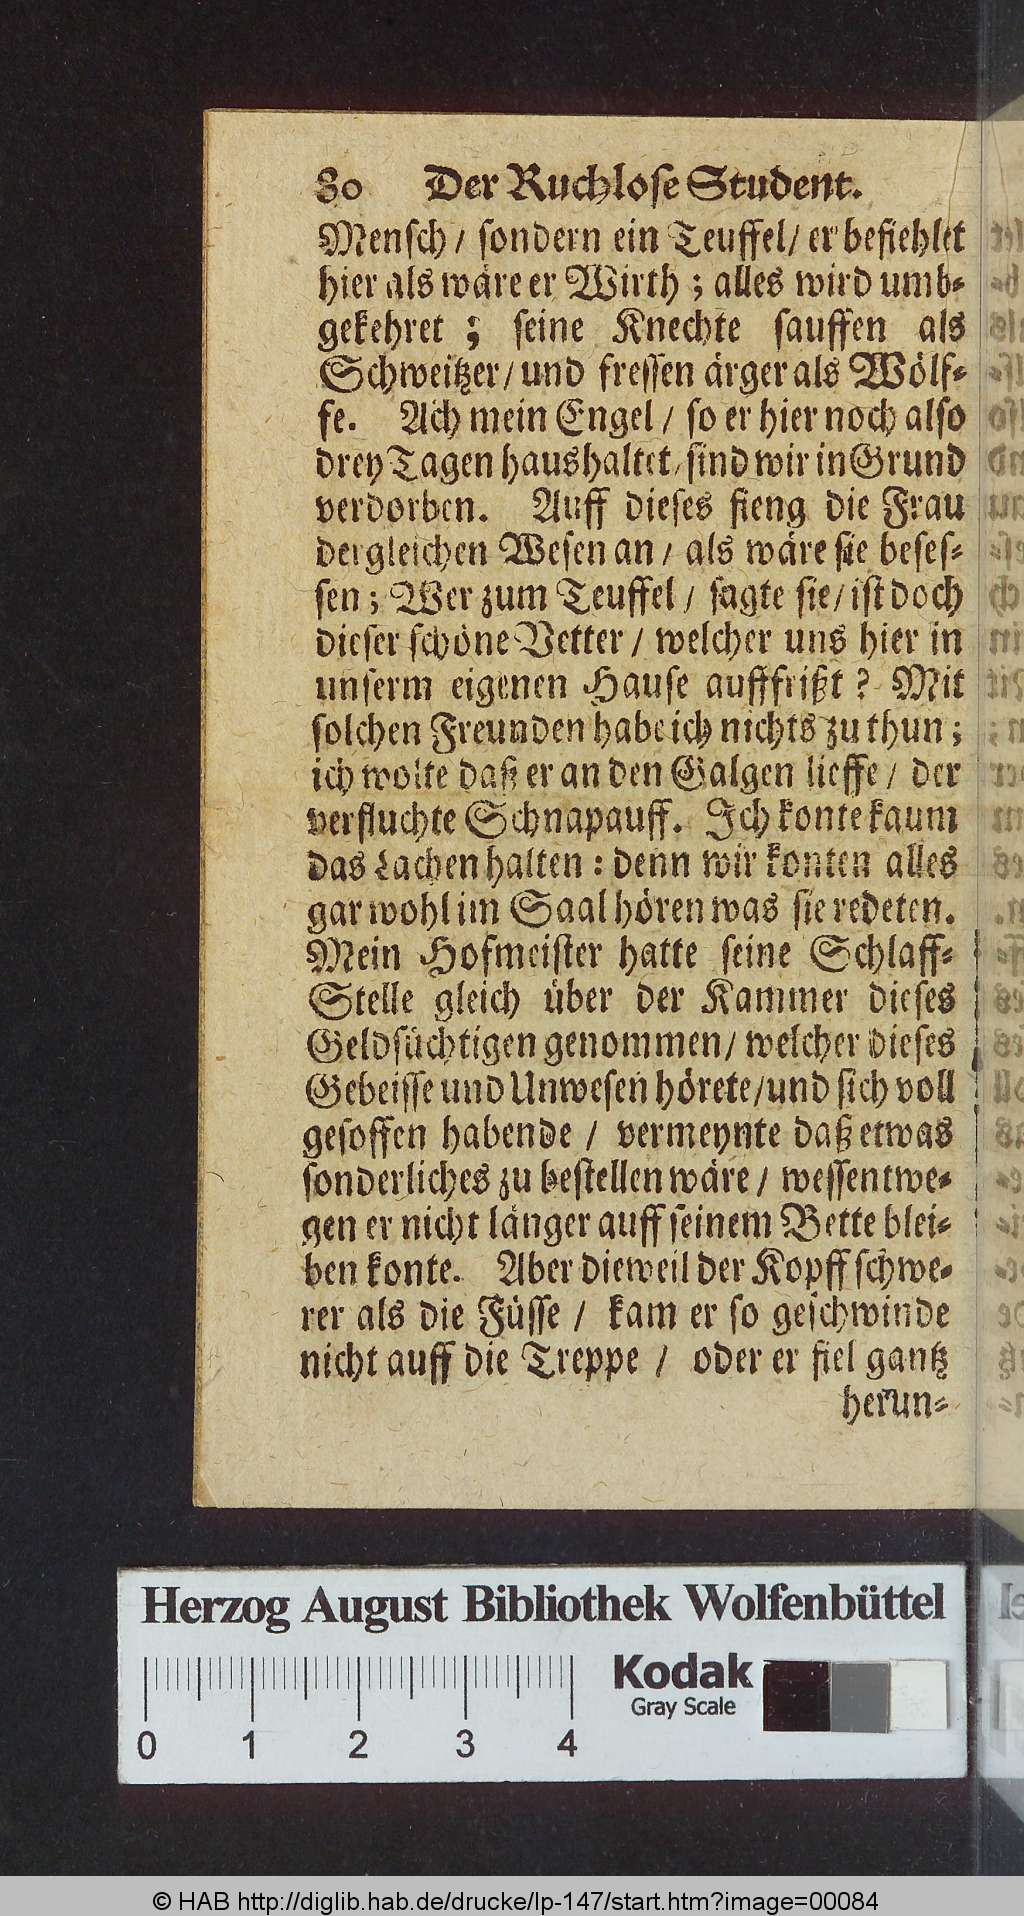 80 Der Ruchlose Student.
Mensch / sondern ein Teuffel / er befiehlet
hier als wäre er Wirth ; alles wird umb-
gekehret ; seine Knechte sauffen als
Schweitzer / und fressen ärger als Wölf-
fe. Ach mein Engel / so er hier noch also
drey Tagen haushaltet / sind wir in Grund
verdorben. Auff dieses fieng die Frau
dergleichen Wesen an / als wäre sie beses-
sen ; Wer zum Teuffel / sagte sie / ist doch
dieser schöne Vetter / welcher uns hier in
unserm eigenen Hause aufffrißt ? Mit
solchen Freunden habe ich nichts zu thun ;
ich wolte daß er an den Galgen lieffe / der
verfluchte Schnapauff. Ich konte kaum
das Lachen halten : denn wir konten alles
gar wohl im Saal hören was sie redeten.
Mein Hofmeister hatte seine Schlaff-
Stelle gleich über der Kammer dieses
Geldsüchtigen genommen / welcher dieses
Gebeisse und Unwesen hörete / und sich voll
gesoffen habende / vermeynte daß etwas
sonderliches zu bestellen wäre / wessentwe-
gen er nicht länger auff seinem Bette blei-
ben konte. Aber dieweil der Kopff schwe-
rer als die Füsse / kam er so geschwinde
nicht auff die Treppe / oder er fiel gantz
herun-
Herzog August Bibliothek Wolfenbüttel
Kodak
Gray Scale
0 1 2 3 4
© HAB http://diglib.hab.de/drucke/lp-147/start.htm?image=00084